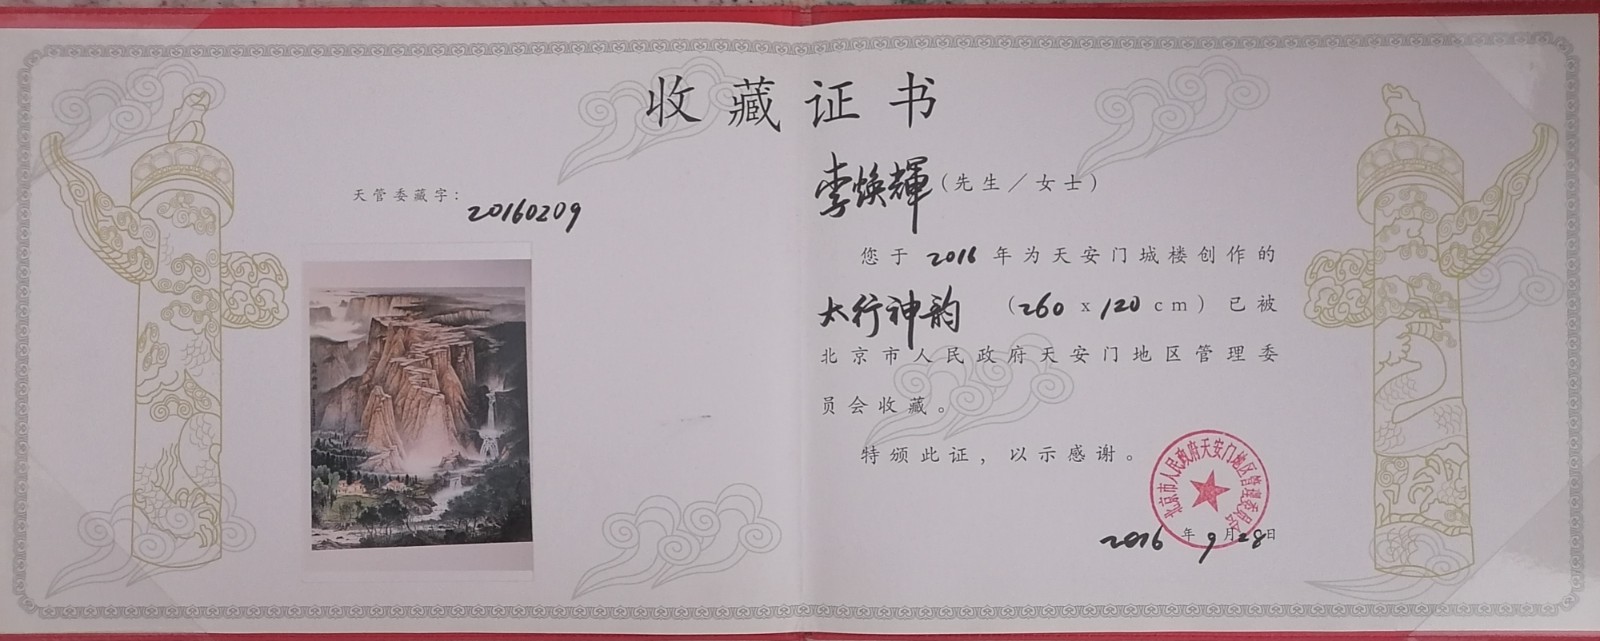 收藏证书
天管委藏字：20160209
李焕輝（先生／女士）
您于2016年为天安门城楼创作的
太行神韵（260x120cm）已被
北京市人民政府天安门地区管理委
员会收藏。
特颁此证，以示感谢。
北京市人民政府天安门地区管理委员会
2016年9月28日